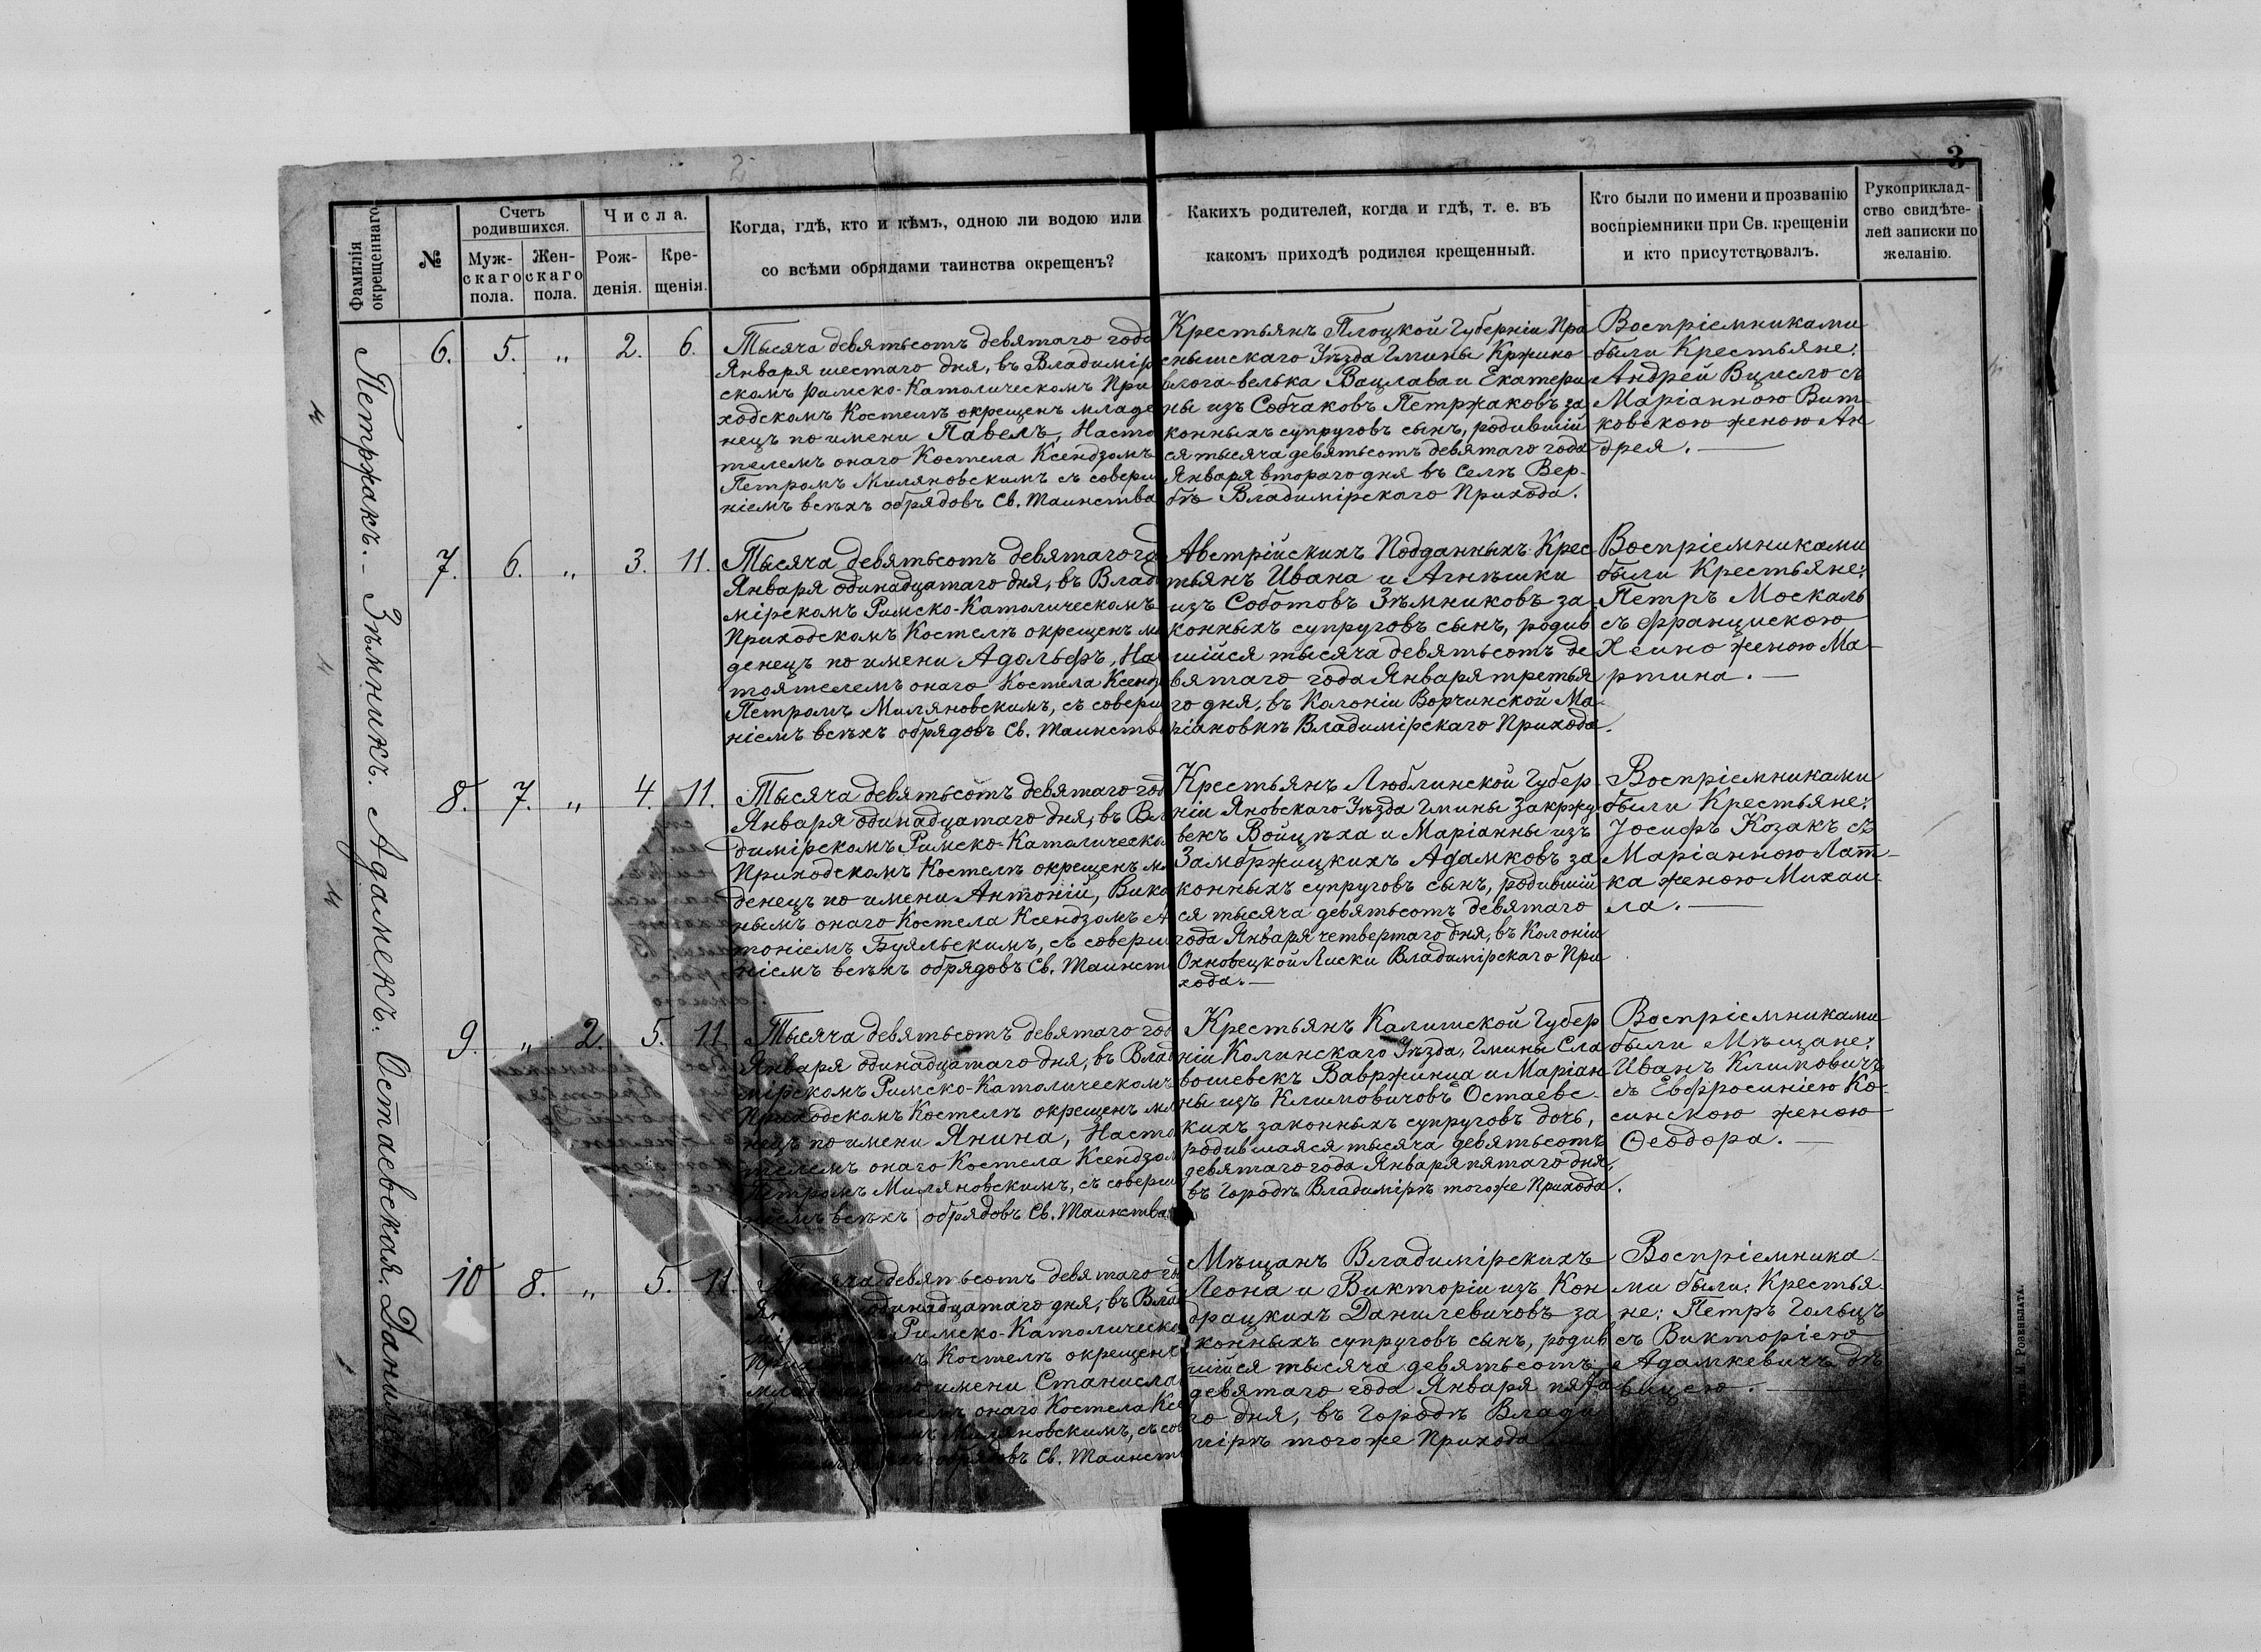 2
3
Фамилія окрещеннаго.
№
Счетъ родившихся.
Муж-скаго пола.
Жен-скаго пола.
Числа.
Рож-денія.
Кре-щенія.
Когда, гдѣ, кто и кѣмъ, одною ли водою или
со всѣми обрядами таинства окрещенъ?
Какихъ родителей, когда и гдѣ, т. е. въ
какомъ приходѣ родился крещенный.
Кто были по имени и прозванію
воспріемники при Св. крещеніи
и кто присутствовалъ.
Рукоприклад-
ство свидѣте-
лей записки по
желанію.
Петржакъ. - Зѣмникъ. Адамекъ. Остаевская.
6. 5. „ 2. 6.
Тысяча девятьсотъ девятаго года
Января шестаго дня, въ Владимір
скомъ Римско-Католическомъ При
ходскомъ Костелѣ окрещенъ младе
нецъ по имени Павелъ, Насто
телемъ онаго Костела Ксендзомъ
Петромъ Миляновскимъ съ соверш
ніемъ всѣхъ обрядовъ Св. Таинства
Крестьянъ Плоцкой Губерніи Пра
снышскаго Уѣзда Гмины Кржино
влога-велька Вацлава и Екатери
ны изъ Собчаковъ Петржаковъ за
конныхъ супруговъ сынъ, родившій
ся тысяча девятьсотъ девятаго года
Января втораго дня въ Селѣ Вер-
бѣ Владимірскаго Прихода.
Воспріемниками
были Крестьяне:
Андрей Вцисло съ
Маріанною Вит-
ковскою женою Ан
дрея. —
7. 6. „ 3. 11.
Тысяча девятьсотъ девятаго го
Января одинадцатаго дня, въ Влад
мірскомъ Римско-Католическомъ
Приходскомъ Костелѣ окрещенъ мл
денецъ по имени Адольфъ, На
тоятелемъ онаго Костела Ксенд
Петромъ Миляновскимъ, съ соверш
ніемъ всѣхъ обрядовъ Св. Таинств
Австрійскихъ Подданныхъ Крес
тьянъ Ивана и Агнѣшки
изъ Соботовъ Зѣмниковъ за-
конныхъ супруговъ сынъ, родив
шійся тысяча девятьсотъ де
вятаго года Января третья
го дня, въ Колоніи Ворчинской Ма
ріановкѣ Владимірскаго Прихода.
Воспріемниками
были Крестьяне:
Петръ Москаль
съ Францискою
женою Ма-
ртина. —
8. 7. „ 4. 11.
Тысяча девятьсотъ девятаго год
Января одинадцатаго дня, въ Вл
димірскомъ Римско-Католическо
Приходскомъ Костелѣ окрещенъ мл
денецъ по имени Антоній, Вика
нымъ онаго Костела Ксендзомъ А
тоніемъ Буяльскимъ, съ соверш
ніемъ всѣхъ обрядовъ Св. Таинст
Крестьянъ Люблинской Губер
ніи Яновскаго Уѣзда Гмины Закржу
векъ Войцѣха и Маріанны изъ
Замбржицкихъ Адамковъ за
конныхъ супруговъ сынъ, родившій
ся тысяча девятьсотъ девятаго
года Января четвертаго дня, въ Колоніи
Охновецкой Лиски Владимірскаго При
хода. —
Воспріемниками
были Крестьяне:
Іосифъ Козакъ съ
Маріанною Лат-
ка женою Михаи
ла. —
9. „ 2. 5. 11.
Тысяча девятьсотъ девятаго год
Января одинадцатаго дня, въ Влад
мірскомъ Римско-Католическомъ
Приходскомъ Костелѣ окрещенъ мл
нецъ по имени Янина, Насто
телемъ онаго Костела Ксендзом
Петромъ Миляновскимъ, съ соверш
ніемъ всѣхъ обрядовъ Св. Таинства
Крестьянъ Калишской Губер
ніи Колинскаго Уѣзда, Гмины Сла
вошевскъ Вавржинца и Маріан
ны изъ Климовичовъ Остаевс-
кихъ законныхъ супруговъ дочь,
родившаяся тысяча девятьсотъ
девятаго года Января пятаго дня,
въ Городѣ Владимірѣ тогоже Прихода.
Воспріемниками
были Мѣщане:
Иванъ Климовичъ
съ Евфросиніею Ко-
синскою женою
Ѳеодора. —
10 8. „ 5. 11.
Тысяча девятьсотъ девятаго го
одинадцатаго дня, въ Влад
Римско-Католическо
Костелѣ окрещенъ
имени Станисла
онаго Костела Ксе
Миляновскимъ, съ со
обрядовъ Св. Таинст
Мѣщанъ Владимірскихъ
Леона и Викторіи изъ Кон
драцкихъ Данилевичовъ за
конныхъ супруговъ сынъ, родив
шійся тысяча девятьсотъ
девятаго года Января пята
го дня, въ Городѣ Влади
мірѣ тогоже Прихода
Воспріемника-
ми были: Крестья-
не: Петръ Гольцъ
съ Викторіею
Адамкевичъ дѣ
вицею. —
М. РОЗЕНБЛАТА.